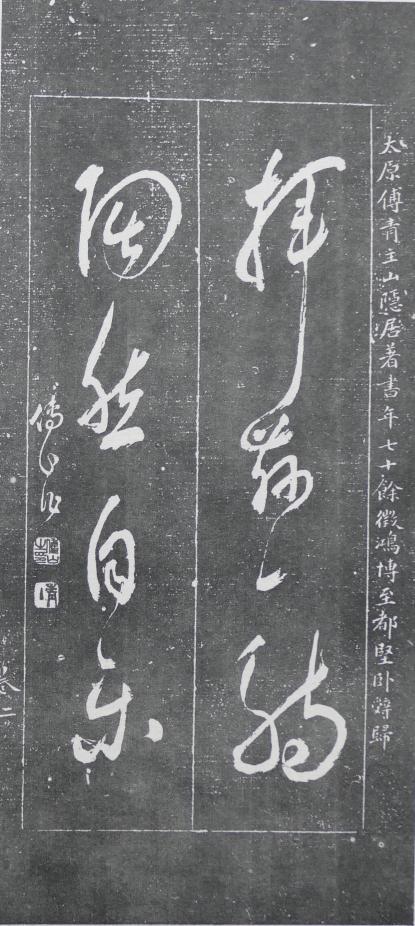 太原傅青主山隱居著書年七十餘徵鴻博至都堅卧辭歸
揮茲一觴
陶然自樂
傅山
傅山之印
卷二